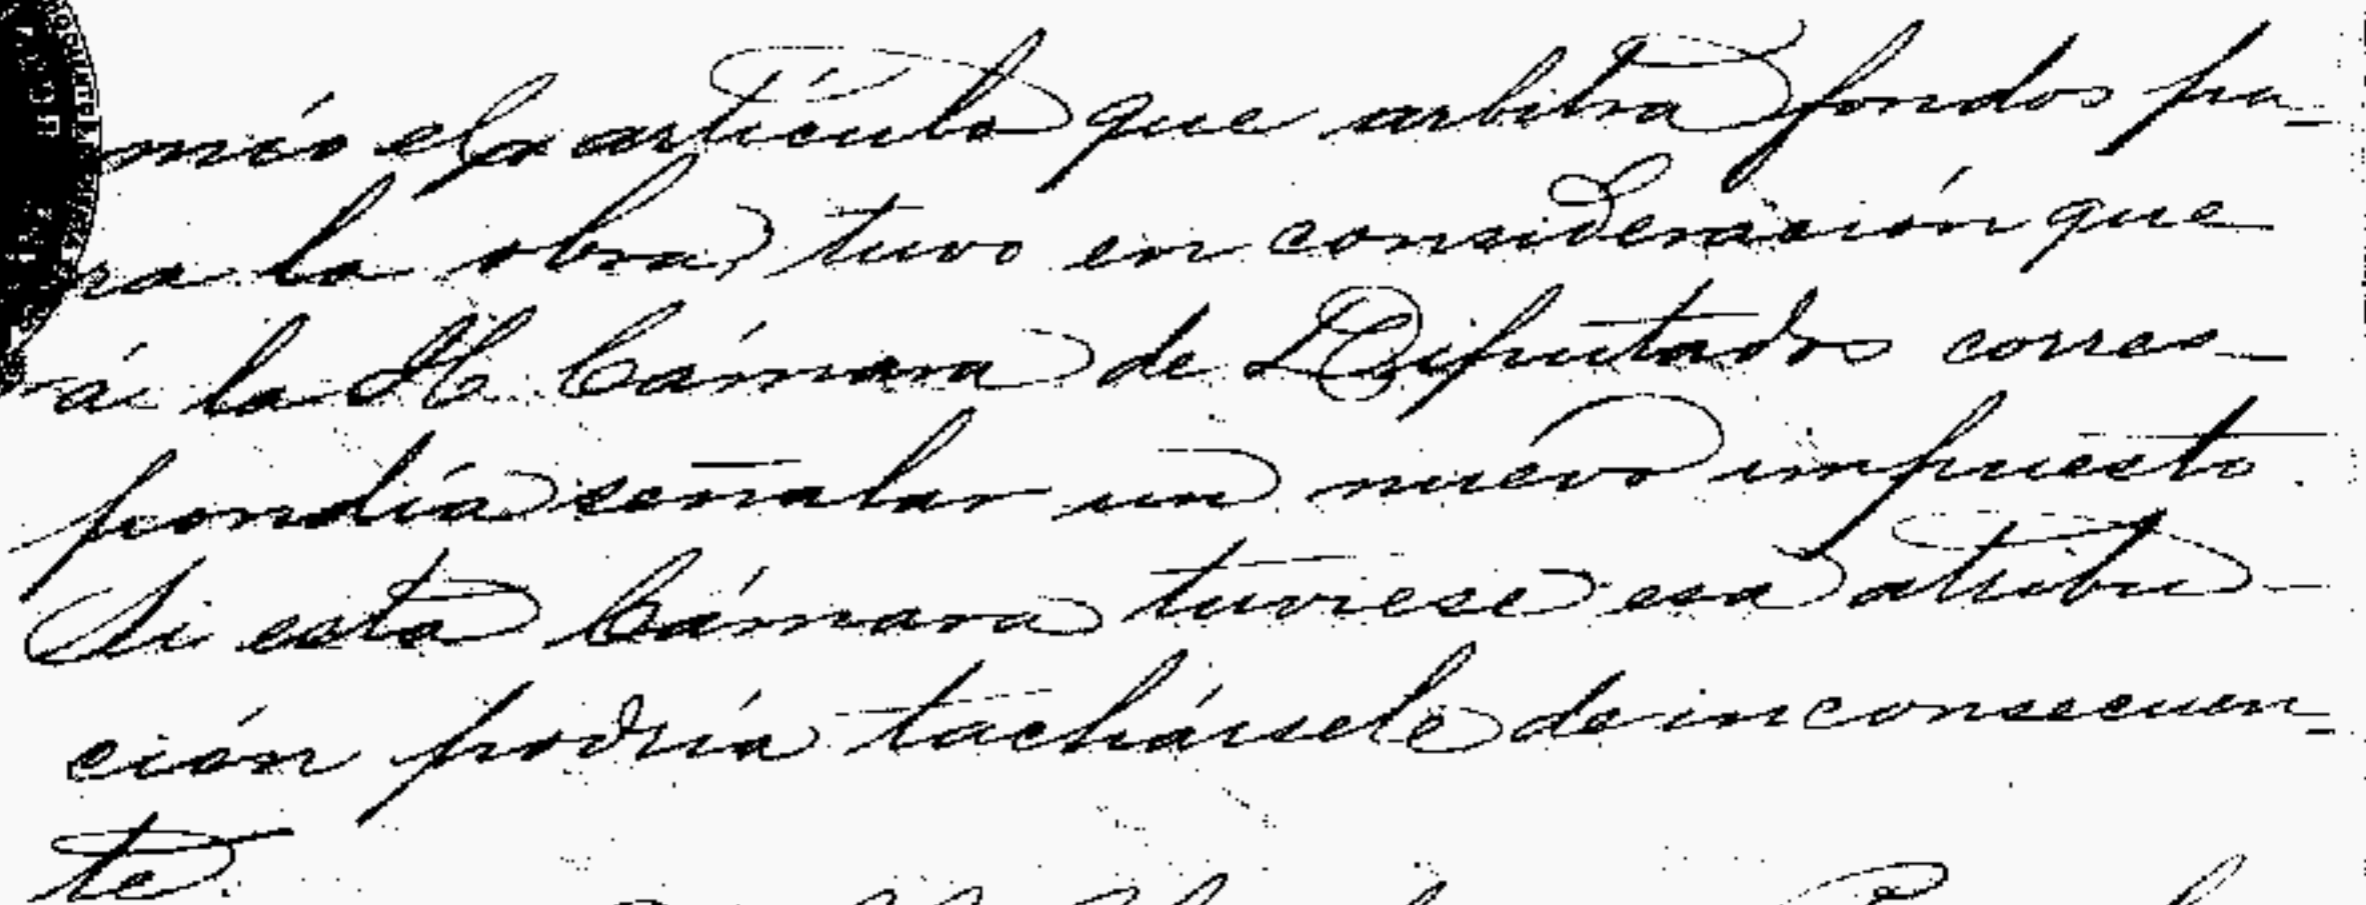 mió el artículo que arbitra fondos pa-
ra la obra, tuvo en consideración que
á la H. Cámara de Diputados corres-
pondía señalar un nuevo impuesto.
Si esta Cámara tuviese esa atribu-
ción podría tachársele de inconsecuen-
te.